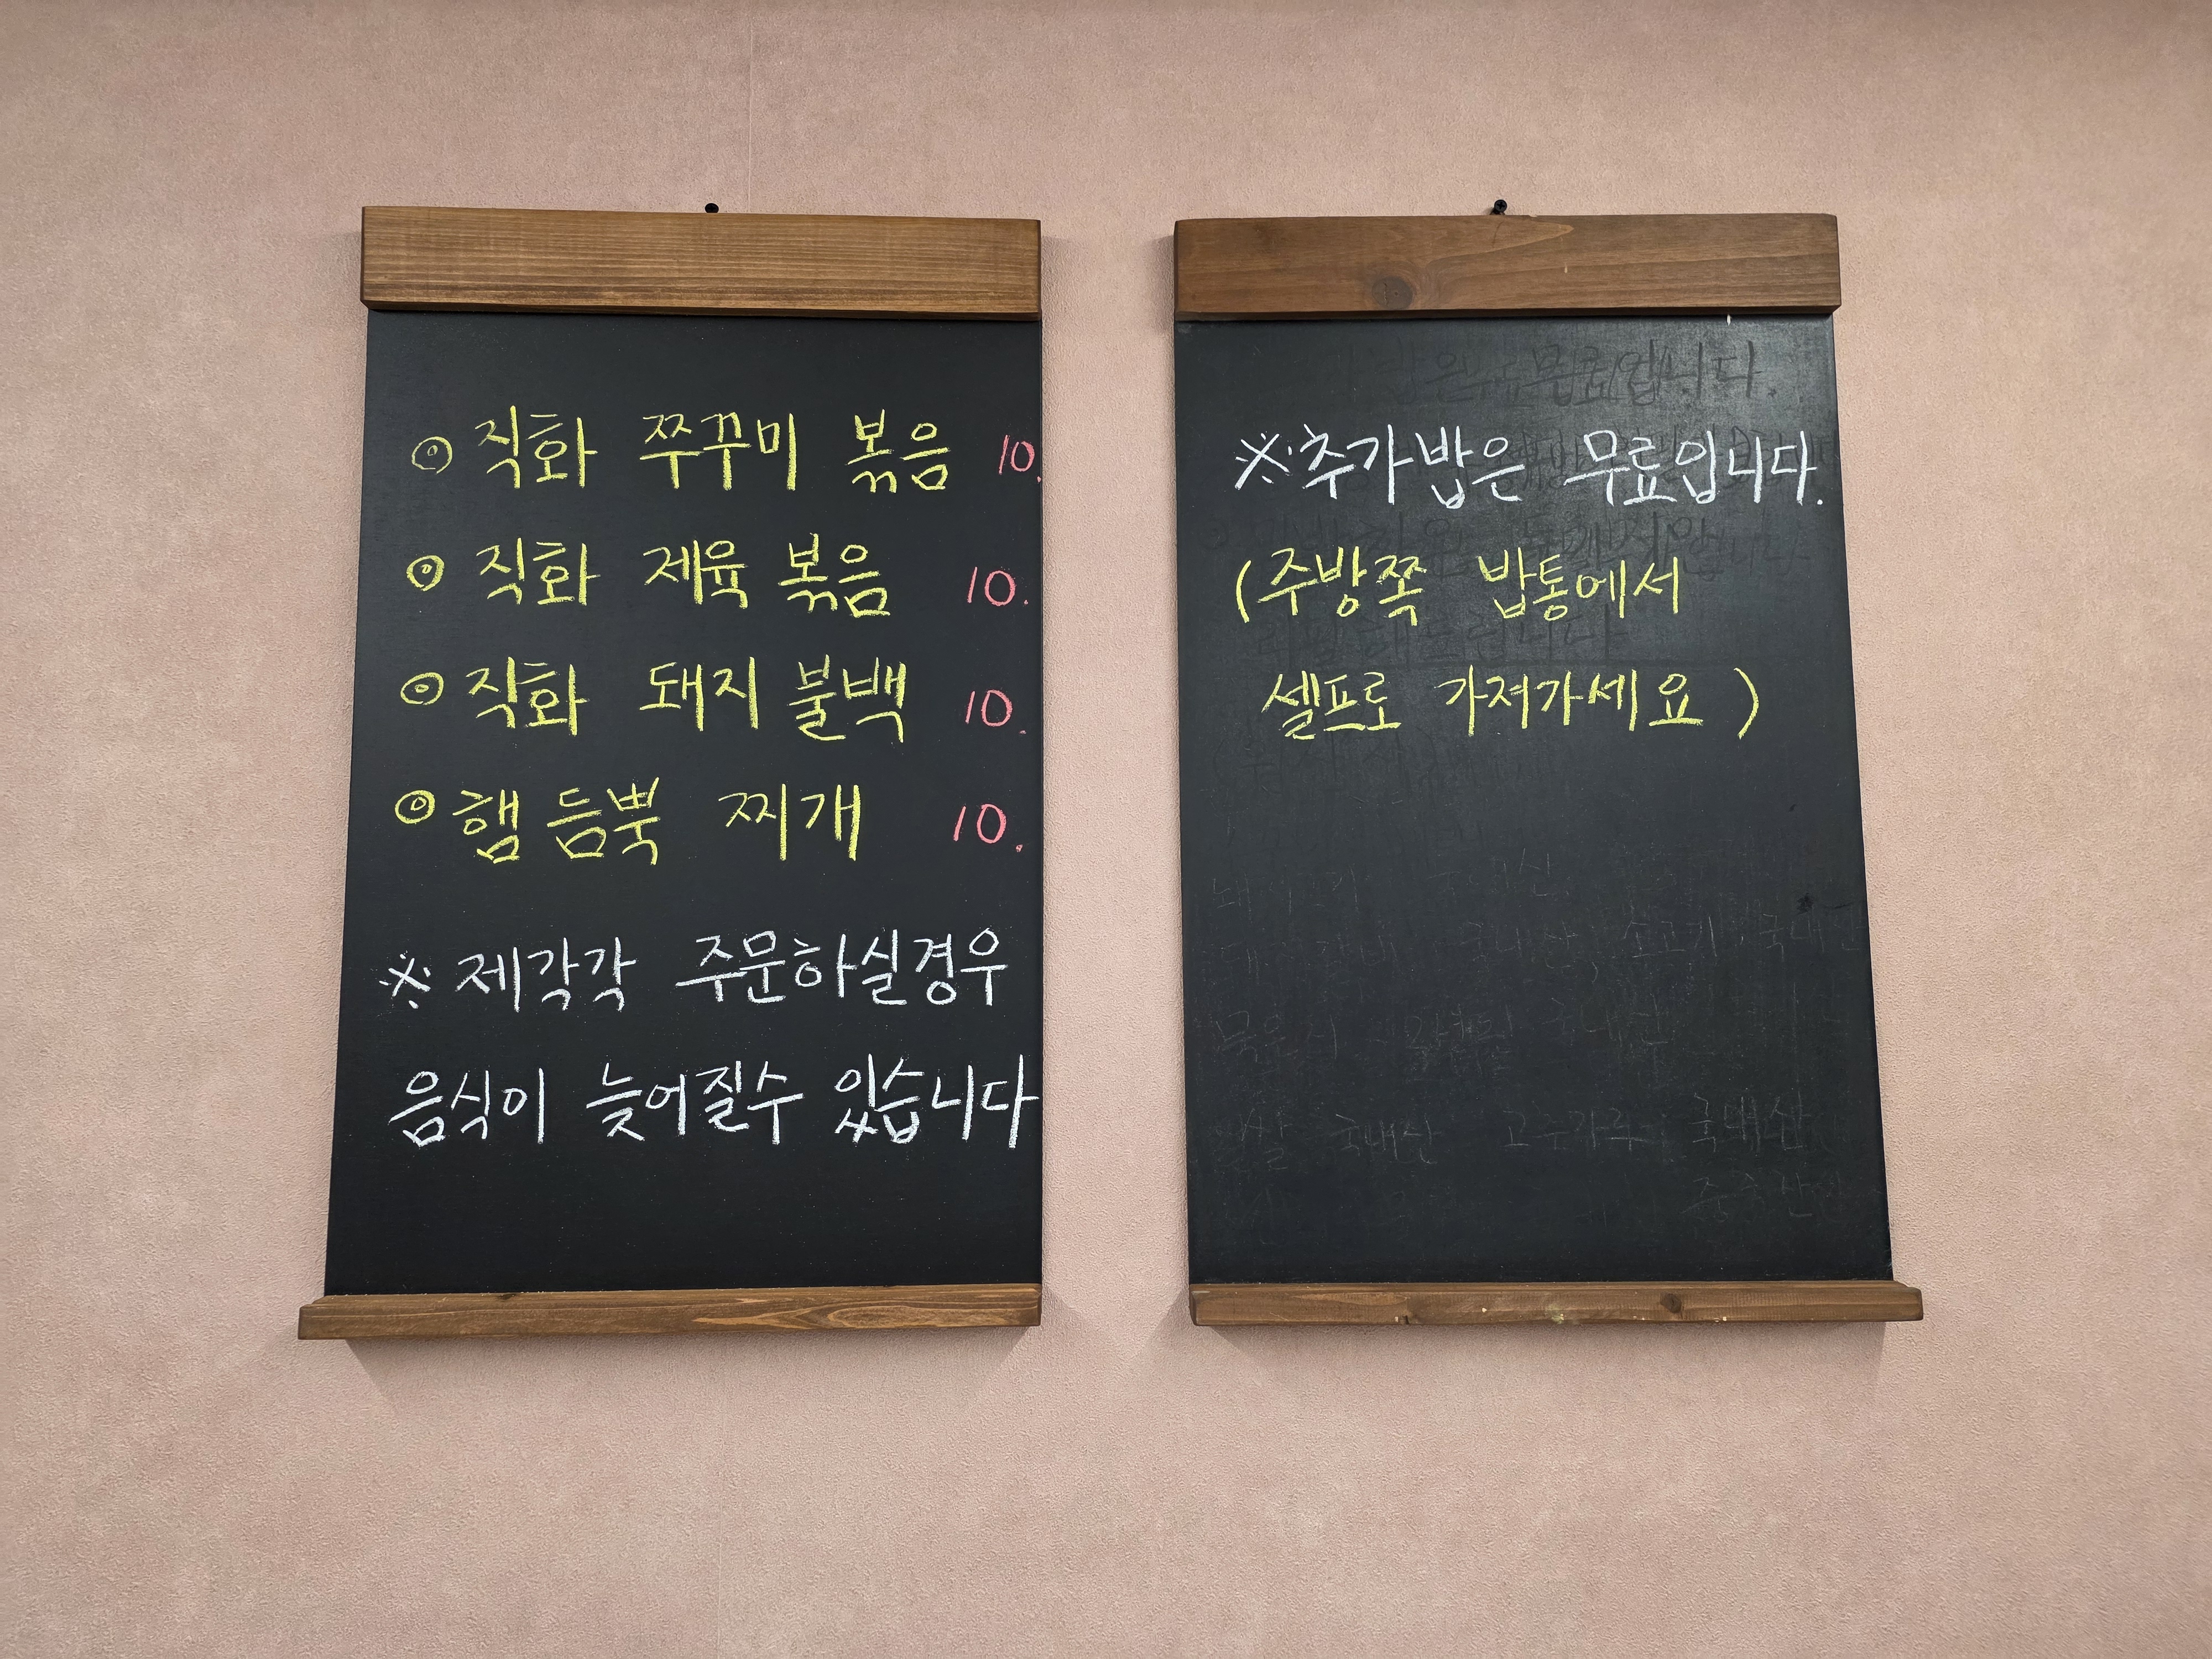 ◉ 직화 쭈꾸미 볶음 10.
◉ 직화 제육 볶음 10.
◉ 직화 돼지 불백 10.
◉ 햄 듬뿍 찌개 10.
※ 제각각 주문하실경우
음식이 늦어질수 있습니다
※추가밥은 무료입니다.
(주방쪽 밥통에서
셀프로 가져가세요)
국내산
쌀 국내산 고춧가루 국내산
중국산